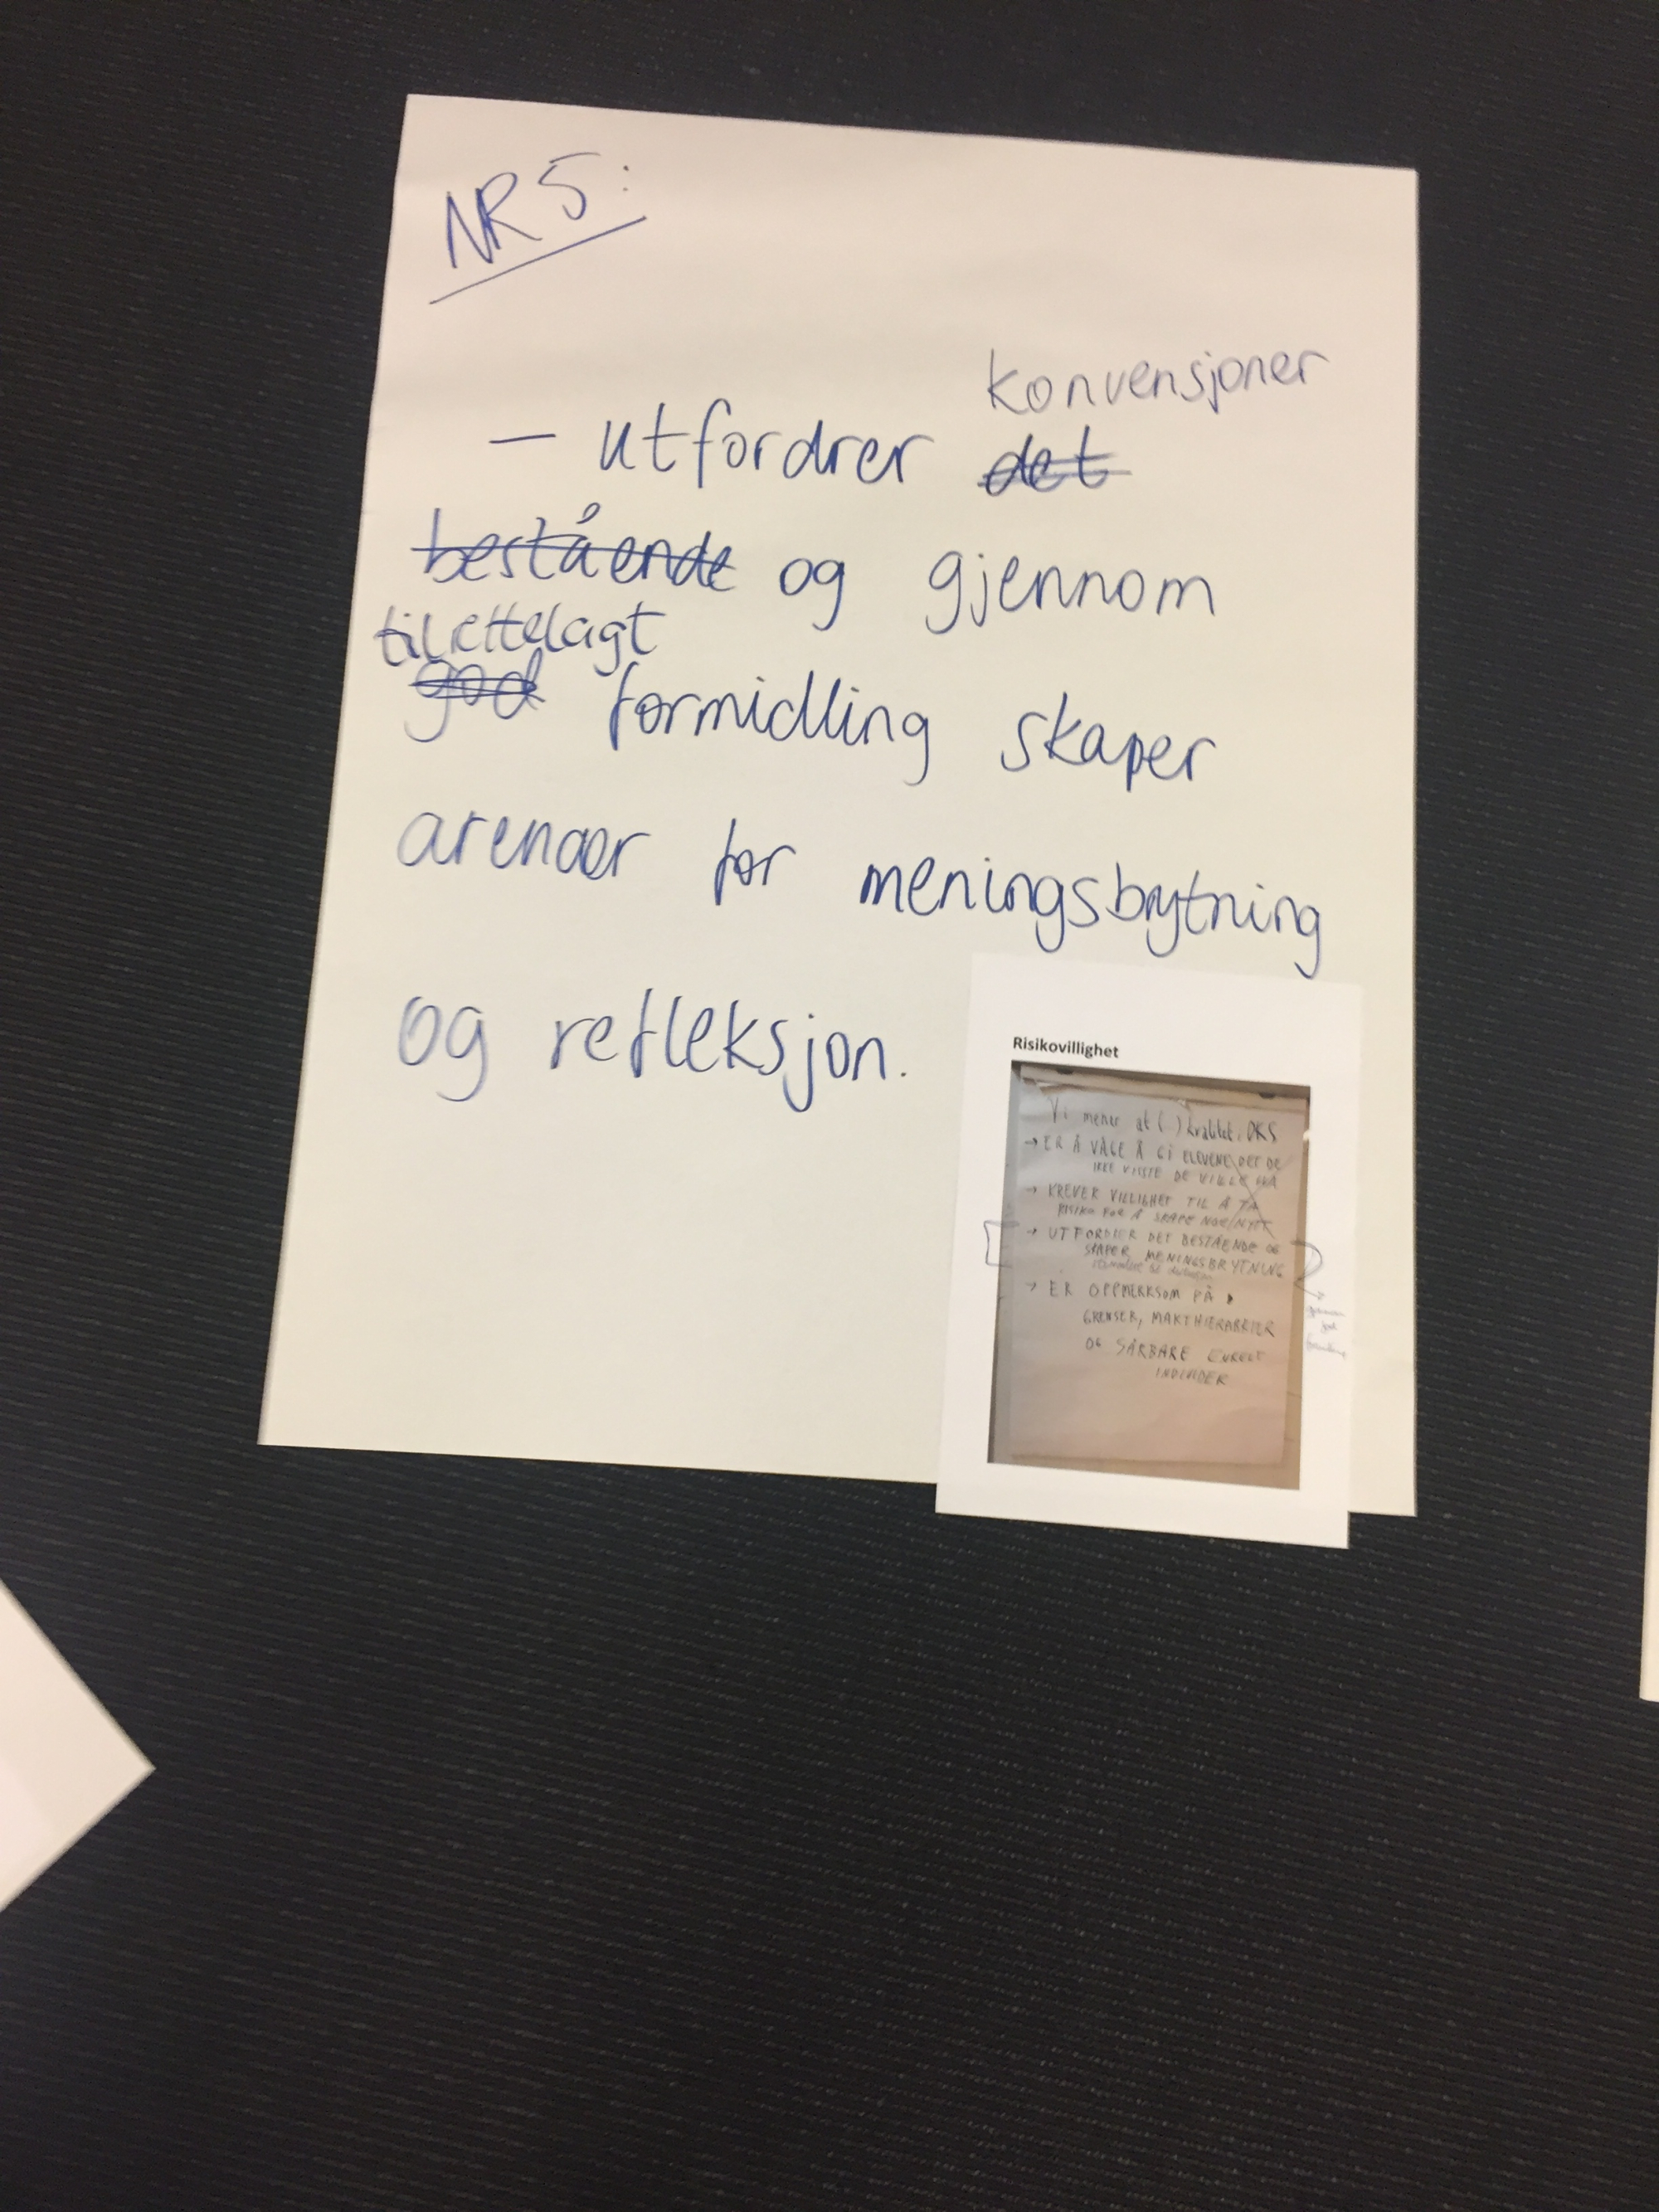 NR 5:
konvensjoner
— utfordrer det
bestående og gjennom
tilrettelagt
god formidling skaper
arenaer for meningsbrytning
og refleksjon.
Risikovillighet
Vi mener at (...) kvalitet i DKS
→ ER Å VÅGE Å GI ELEVENE DET DE
IKKE VISSTE DE VILLE HA
→ KREVER VILLIGHET TIL Å TA
RISIKO FOR Å SKAPE NOE NYTT
→ UTFORDRER DET BESTÅENDE OG
SKAPER MENINGSBRYTNING
→ ER OPPMERKSOM PÅ
GRENSER, MAKTHIERARKIER
OG SÅRBARE ENKELT
INDIVIDER